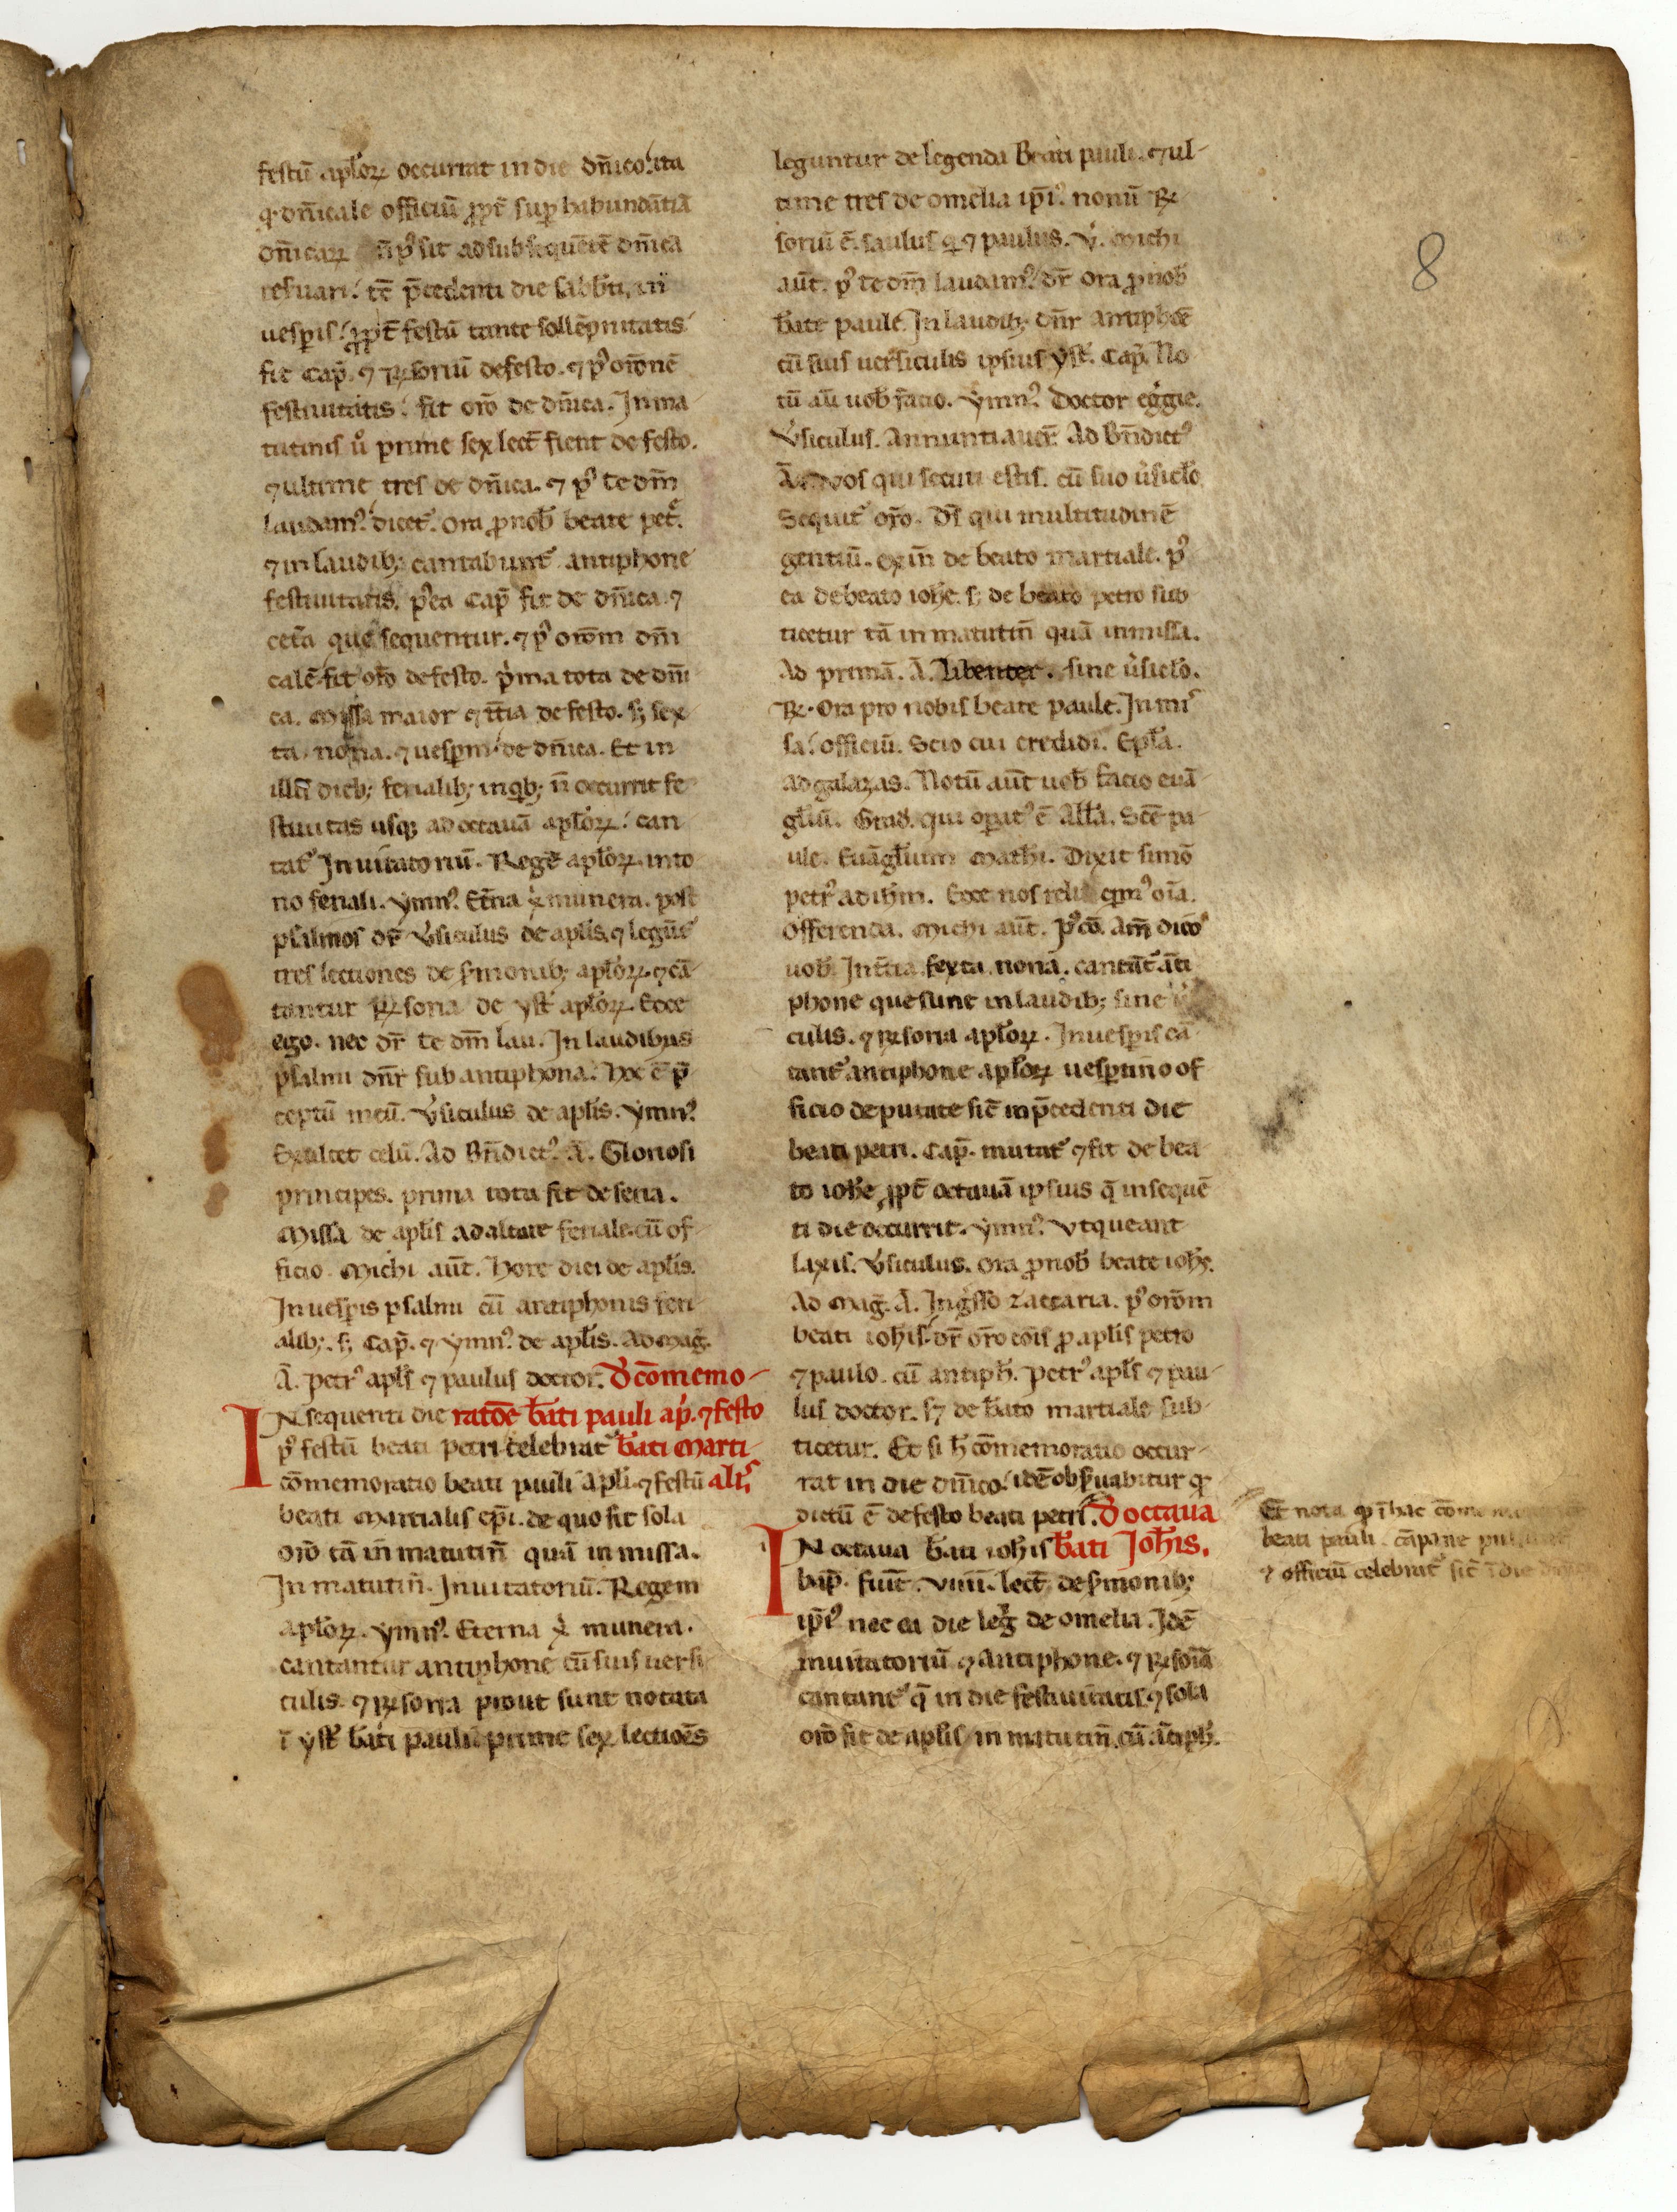 festū apl̄oꝝ occurrat in die dn̄ico. ita
q dn̄icale officiū ꝓpt̄ suꝑhabundātiā
dn̄icaꝝ n̄ pꝰsit ad subsequētē dn̄icā
res̄uari. tc̄ p̄cedenti die sabb̄ti, in
uesꝑis. ꝓpt̄ festū tante sollēpnitatis
fit Cap̄. ⁊ ꝶsoriū de festo. ⁊ pꝰ orōnē
festiuitatis. fit orō de dn̄ica. In ma
tutinis ū prime sex lect̄ fient de festo.
⁊ ultime tres de dn̄ica. ⁊ pꝰ te dm̄
laudamꝰ. dicet᷑. Ora ꝓ nob̄ beate pet̄.
⁊ in laudibꝫ cantabunt᷑ antiphone
festiuitatis. pꝰea Cap̄ fit de dn̄ica. ⁊
cet̄a que sequentur. ⁊ pꝰ orōm dn̄i
calē fit orō de festo. p̄ma tota de dn̄i
ca. Missa maior ⁊ t̄tia de festo. sꝫ sex
ta. nona. ⁊ uesꝑni de dn̄ica. Et in
illis diebꝫ ferialibꝫ in qͥbꝫ n̄ occurrit fe
stiuitas usqꝫ ad octauā apl̄oꝝ. can
tat᷑ Inuitatoriū. Regē apl̄oꝝ. in to
no feriali. ymnꝰ. Et̄na x̄ munera. post
psalmos dr̄ v̄siculus de apl̄is. ⁊ legūt᷑
tres lectiones de s̄monibꝫ apl̄oꝝ. ⁊ cā
tantur ꝶsoria de yst̄ apl̄oꝝ. Ecce
ego. nec dr̄ te dm̄ lau. In laudibus
psalmi dn̄r sub antiphona. Hoc ē p̄
ceptū meū. v̄siculus de apl̄is. ymnꝰ.
Exultet celū. Ad Bn̄dictꝰ. Ā. Gloriosi
principes. prima tota fit de feria.
Missa de apl̄is ad altare feriale. cū of
ficio Michi aūt. Hore diei de apl̄is.
In uesꝑis psalmi cū antiphonis feri
alibꝫ. sꝫ Cap̄. ⁊ ymnꝰ. de apl̄is. Ad Mag̅.
Ā. Petrꝰ apl̄s ⁊ paulus doctor. D̄ cōmemo-
IN sequenti die ratōe b̄ati pauli ap̄. ⁊ festo
pꝰ festū beati petri celebrat᷑ b̄ati Marti-
cōmemoratio beati pauli apl̄i. ⁊ festū alis̄
beati Martialis ep̄i. de quo fit sola
orō tā in matutin̄ quā in missa.
In matutin̄. Inuitatoriū. Regem
apl̄oꝝ. ymnꝰ. Eterna x̄ munera.
cantantur antiphone cū suis uersi
culis. ⁊ ꝶsoria prout sunt notata
ī yst̄ b̄ati pauli. prime sex lectiōēs
leguntur de legenda Beati pauli. ⁊ ul-
time tres de omelia ip̄iꝰ. nonū ꝶ
soriū ē. saulus qͥ ⁊ paulus. V̄. Michi
aūt. pꝰ te dm̄ laudamꝰ. dr̄ ora ꝓ nob̄
b̄ate paule. In laudibꝫ dn̄r antiphoē
cū suis uersiculis ipsius yst̄. Cap̄. No
tū aū uob̄ facio. ymnꝰ. Doctor eḡgie.
V̄siculus. Annuntiauer̄. Ad Bn̄dictꝰ
Ā. vos qui secuti estis. cū suo v̄siclo
Sequit᷑ orō. Ds̄ qui multitudinē
gentiū. exin̄ de beato martiale. pꝰ
ea de beato ioh̄e. sꝫ de beato petro sub
ticetur tā in matutin̄ quā in missa.
Ad primā. Ā. Libenter. sine v̄siclo.
ꝶ. Ora pro nobis beate paule. In mis
sa. officiū. Scio cui credidi. Epl̄a.
ad galazas. Notū aūt uob̄ facio euā
gl̄iū. Grad̄. qui oꝑatꝰ ē All̄a. Sc̄e pa
ule. Euāgl̄ium Math̄i. Dixit simō
petrꝰ ad ih̄m. Ecce nos reliqͥmꝰ oīa.
Offerenda. Michi aūt. Pꝰcō. Am̄ dico
uob̄. In t̄tia. sexta. nona. cantāt᷑ āti
phone que sunt in laudibꝫ sine
culis. ⁊ ꝶsoria apl̄oꝝ. In uesꝑis cā
tant᷑ antiphone apl̄oꝝ uesꝑtino of
ficio deputate sic̄ in p̄cedenti die
beati petri. Cap̄. mutat᷑ ⁊ fit de bea
to ioh̄e ꝓpt̄ octauā ipsius q̄ in sequē
ti die occurrit. ymnꝰ. Vt queant
laxis. V̄siculus. Ora ꝓ nob̄ beate ioh̄e.
Ad Mag̅. Ā. Ingʳsso zaccaria. pꝰ orōm
beati ioh̄is. dr̄ orō cōīs ꝓ apl̄is petro
⁊ paulo. cū antiph̄. Petrꝰ apl̄s ⁊ pau-
lus doctor. sꝫ de b̄ato martiale sub-
ticetur. Et si h̄ cōmemoratio occur-
rat in die dn̄ico. idē obs̄uabitur qͦ
dictū ē de festo beati petri. D̄ octaua
IN octaua b̄ati ioh̄is b̄ati Joh̄is.
bap̄. fiūt. viiii. lect̄ de s̄monibꝫ
ip̄iꝰ nec ea die leḡ de omelia. Idē
inuitatoriū ⁊ antiphone. ⁊ ꝶsoria
cantant᷑ q̄ in die festiuitatis. ⁊ sola
orō fit de apl̄is in matutin̄. cū ātiph̄.
Et nota qͦ ī hac cōme
beati pauli. cāpane pul
⁊ officiū celebrat᷑ sic̄ ī die
8